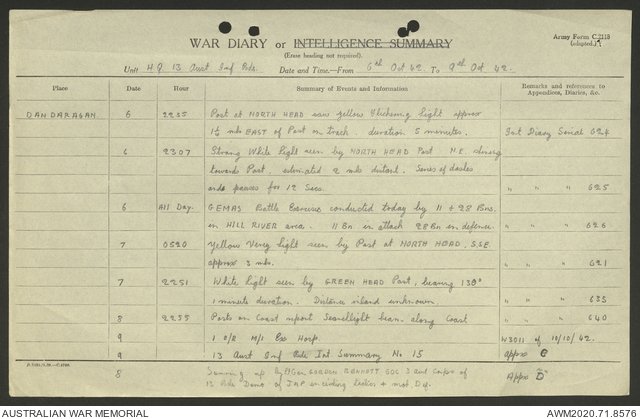 WAR DIARY or INTELLIGENCE SUMMARY
(Erase heading not required).
Army Form C.2118
(adapted.)
Unit H.Q. 13 Aust Inf Bde. Date and Time—From 6th Oct 42 To 9th Oct 42.
Place Date Hour Summary of Events and Information Remarks and references to Appendices, Diaries, &c.
DANDARAGAN. 6 2235 Post at NORTH HEAD saw yellow flickering light approx
1½ mls EAST of Post on track. duration 5 minutes. Int Diary Serial 624
6 2307 Strong White light seen by NORTH HEAD Post N.E. shining
towards Post. estimated 2 mls distant. Series of dashes
and pauses for 12 Secs. " " " 625
6 All Day. GEMAS Battle Exercise conducted today by 11 & 28 Bns.
in HILL RIVER area. 11 Bn in attack 28 Bn in defence. " " " 626
7 0520 Yellow Verey light seen by Post at NORTH HEAD, S.S.E.
approx 3 mls. " " " 621
7 2251 White light seen by GREEN HEAD Post, bearing 130°
1 minute duration. Distance inland unknown. " " " 635
8 2255 Posts on Coast report Searchlight beam along Coast " " " 640
9 1 O/R M/I Ex Hosp. W3011 of 10/10/42.
9 13 Aust Inf Bde Int Summary No. 15 appx C
8 Summing up by GORDON BENNETT GOC 3 Aust Corps of
13 Bde Demo of JAP Appx "D"
AUSTRALIAN WAR MEMORIAL
AWM2020.71.8576